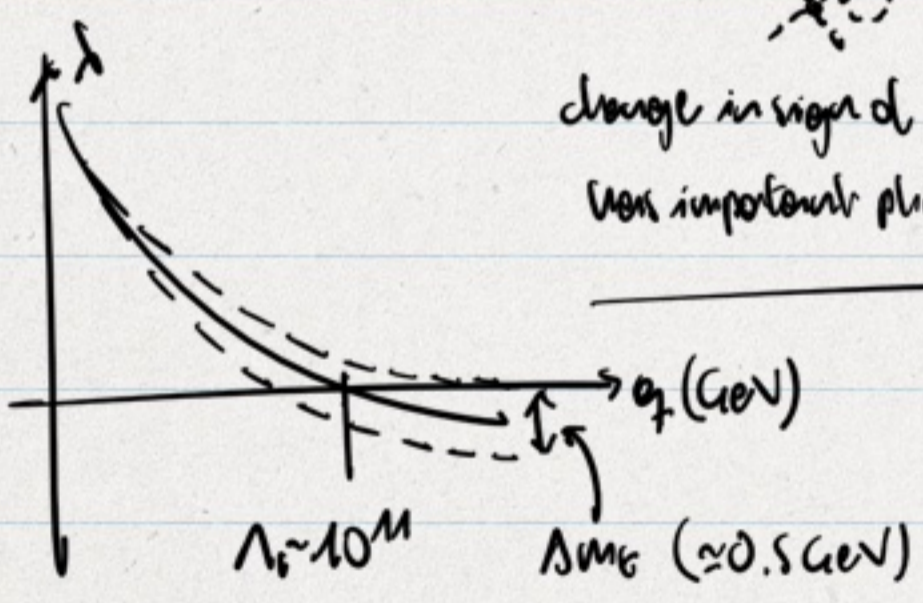 λ
change in sign of
very important
q (GeV)
Λ_I ~ 10^11
Δm_t (≃0.5 GeV)